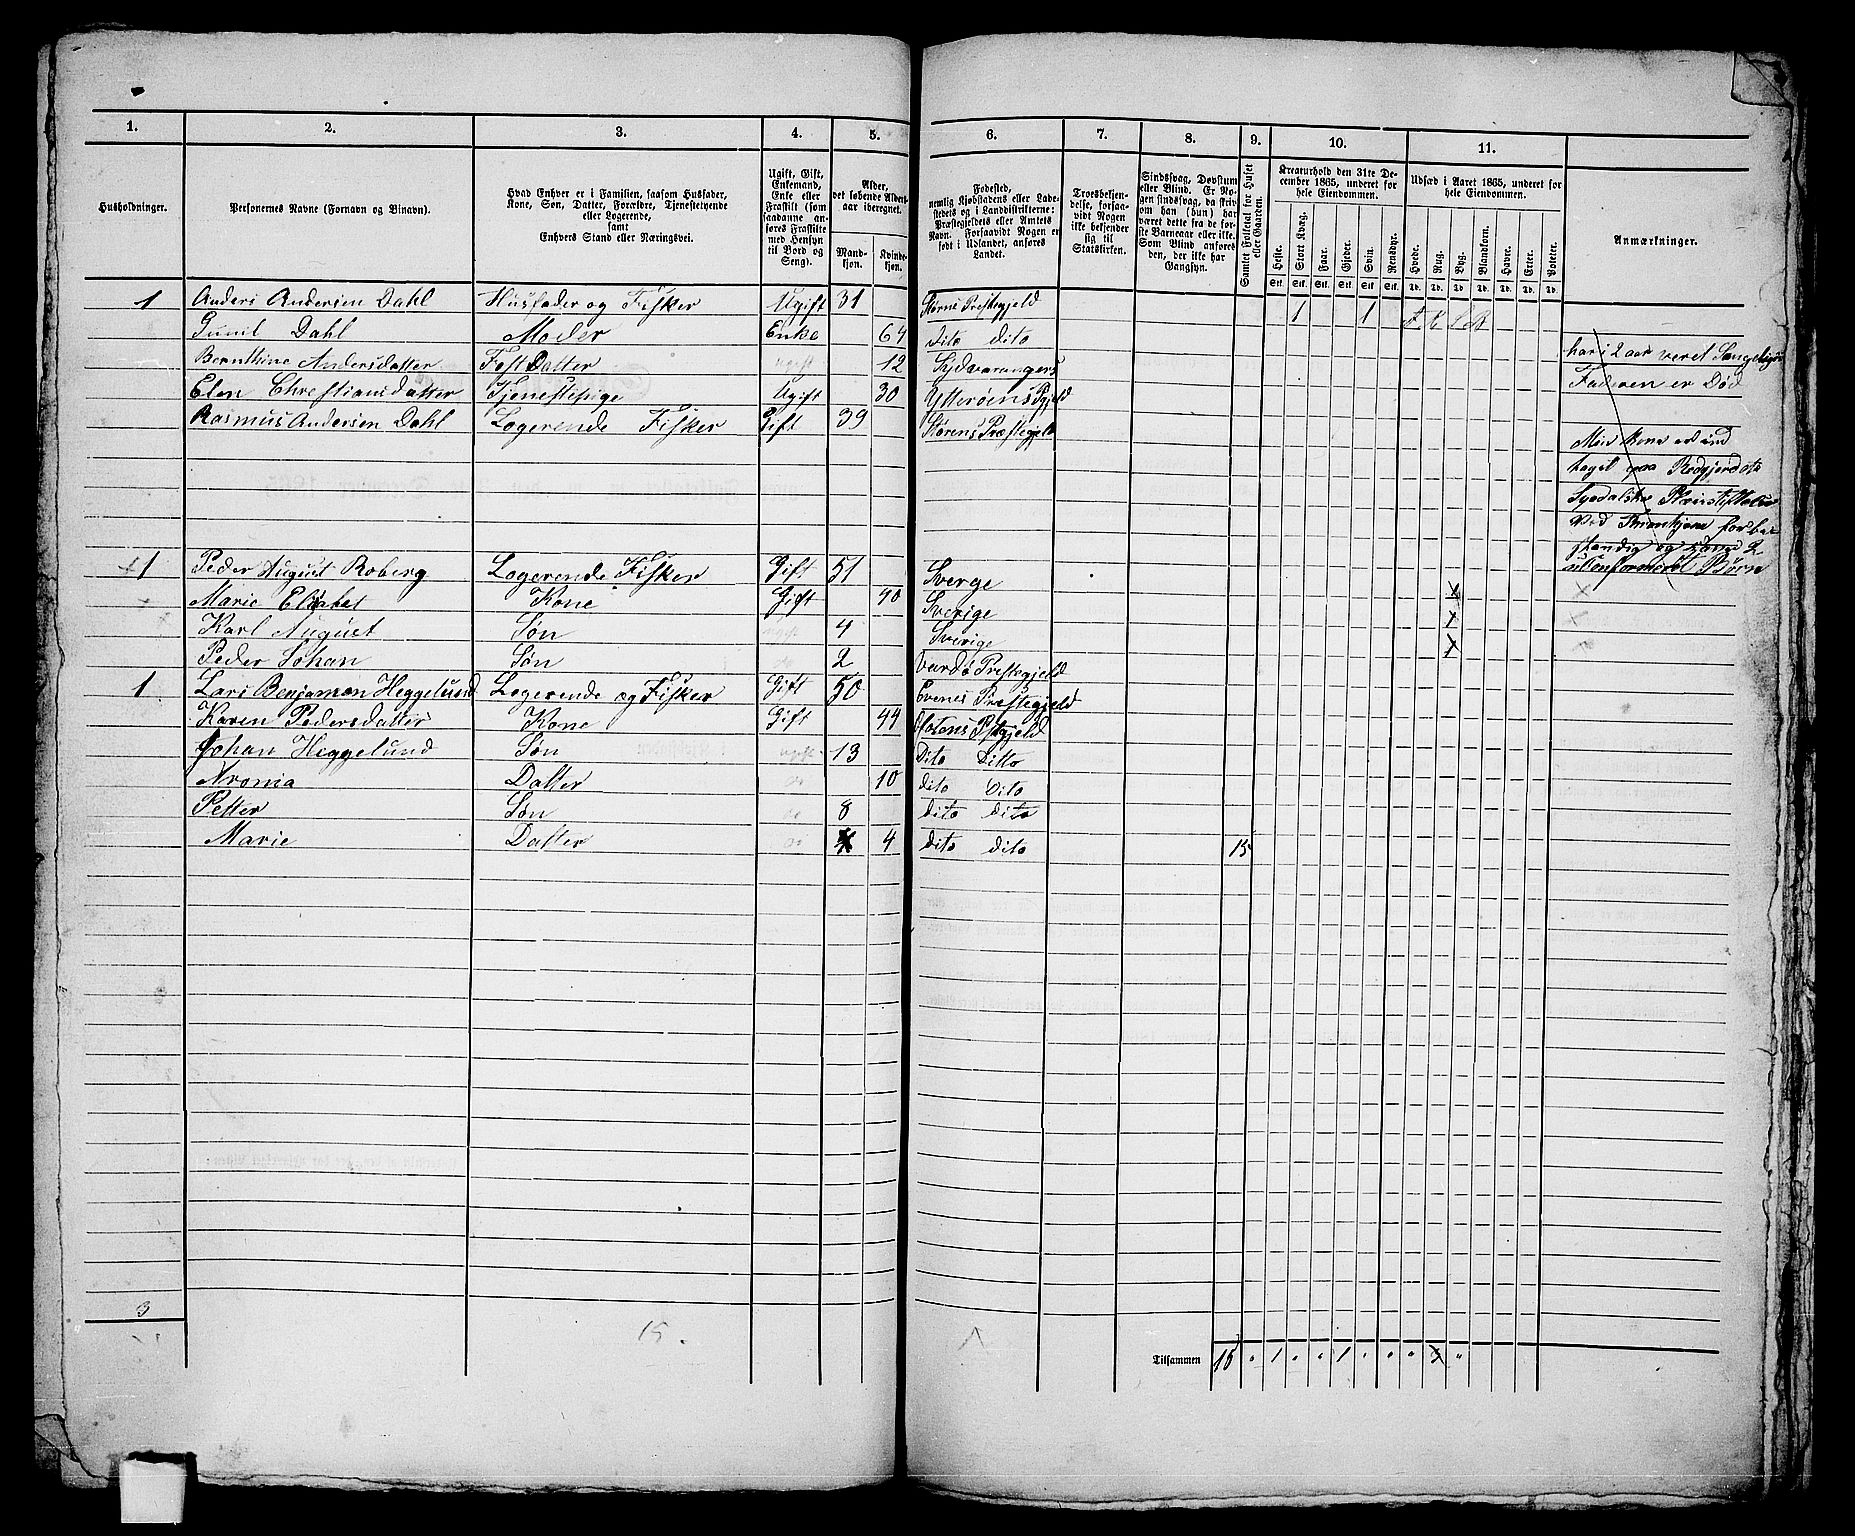 1. 2. 3. 4. 5. 6. 7. 8. 9. 10. 11.
Husholdninger.
Personernes Navne (Fornavn og Binavn).
Hvad Enhver er i Familien, saasom Husfader,
Kone, Søn, Datter, Forældre, Tjenestetyende
eller Logerende,
samt
Enhvers Stand eller Næringsvei.
Ugift, Gift,
Enkemand,
Enke eller
Fraskilt (som
saadanne an-
føres Fraskilte
med Hensyn
til Bord og
Seng).
Alder,
det løbende Alders-
aar iberegnet.
Mand-
kjøn.
Kvinde-
kjøn.
Fødested,
nemlig Kjøbstadens eller Lade-
stedets og i Landdistrikterne:
Præstegjeldets eller Amtets
Navn. Forsaavidt Nogen er
født i Udlandet, anføres
Landet.
Troesbekjen-
delse, forsaa-
vidt Nogen
ikke bekjender
sig til
Statskirken.
Sindssvag, Døvstum
eller Blind. Er No-
gen sindssvag, da skriv
om han (hun) har
været dette fra de før-
ste Barneaar eller ikke.
Som Blind anføres
den, der ikke har
Gangsyn.
Samlet Folketal for Huset
eller Gaarden.
Kreaturhold den 31te De-
cember 1865, underet for
hele Eiendommen.
Heste. Stort Kvæg. Faar. Gjeder. Svin. Rensdyr.
Stk. Stk. Stk. Stk. Stk. Stk.
Udsæd i Aaret 1865, underet for
hele Eiendommen.
Hvede. Rug. Byg. Blandkorn. Havre. Erter. Poteter.
Td. Td. Td. Td. Td. Td. Td.
Anmærkninger.
1 Anders Andersen Dahl Husfader og Fisker Ugift 31 Størns Prestegjeld 1 1
Gunil Dahl Moder Enke 64 dito dito
Bernthine Andersdatter Fost Datter ugift 12 Sydvarangers har i 2 aar veret
Elen Chrestiansdatter Tjenestepige Ugift 30 Ytterøens Pgjeld Faderen er Død
Rasmus Andersen Dahl Logerende Fisker Gift 39 Størens Præstegjeld
Min Kone
paa
Ved
og 2
Børn
1 Peder August Roberg Logerende Fisker Gift 51 Sverge
Marie Elisabet Kone Gift 40 Sverige x
Karl August Søn ugift 4 Sverige x
Peder Johan Søn do 2 Vardø Prestegjeld x
1 Lars Benjamen Heggelund Logerende og Fisker Gift 50 Evenes Prestegjeld
Karen Pedersdatter Kone Gift 44 Ofotens Pstgjeld
Johan Heggelund Søn ugift 13 Dito Ditto
Nronia Datter do 10 dito dito
Petter Søn do 8 dito dito
Marie Datter do 4 dito dito 15
3 15.
Tilsammen 15 " 1 " " 1 " " "